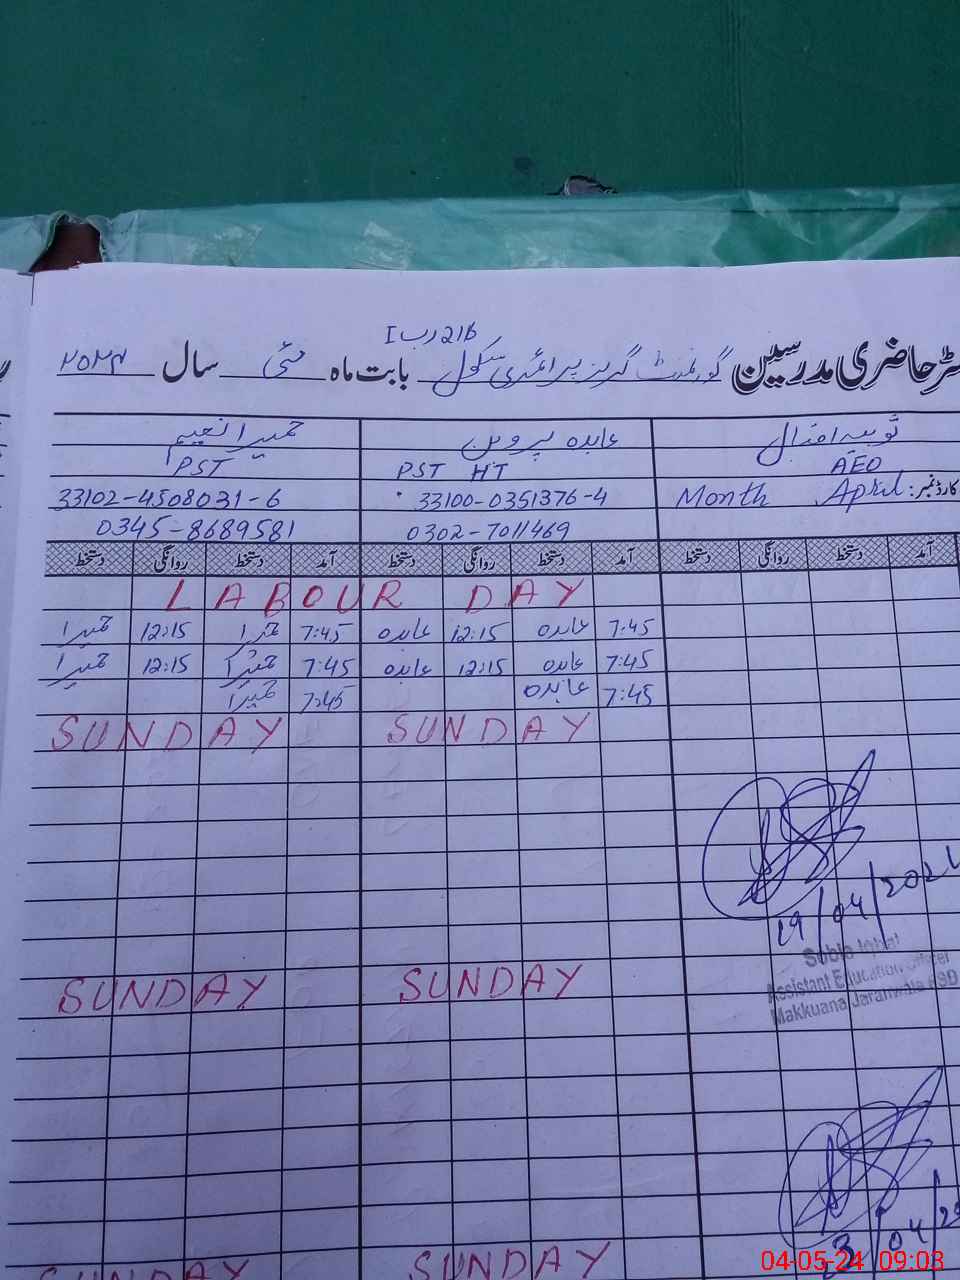 216 رب I
رجسٹر حاضری مدرسین گورنمنٹ گرلز پرائمری سکول بابت ماہ مئی سال ۲۰۲۴
ثوبیہ اقبال عابدہ پروین حمیرا نعیم
AEO PST HT PST
کارڈ نمبر: Month April 33100-0351376-4 33102-4508031-6
0302-7011469 0345-8689581
آمد دستخط روانگی دستخط آمد دستخط روانگی دستخط آمد دستخط روانگی دستخط
LABOUR DAY
7:45 عابدہ 12:15 عابدہ 7:45 حمیرا 12:15 حمیرا
7:45 عابدہ 12:15 عابدہ 7:45 حمیرا 12:15 حمیرا
7:45 عابدہ 7:45 حمیرا
SUNDAY SUNDAY
19/04/202
Iqbal
Assistant Education Officer
Makkuana Jaranwala FSD
SUNDAY SUNDAY
3/04/20
SUNDAY SUNDAY
04-05-24 09:03